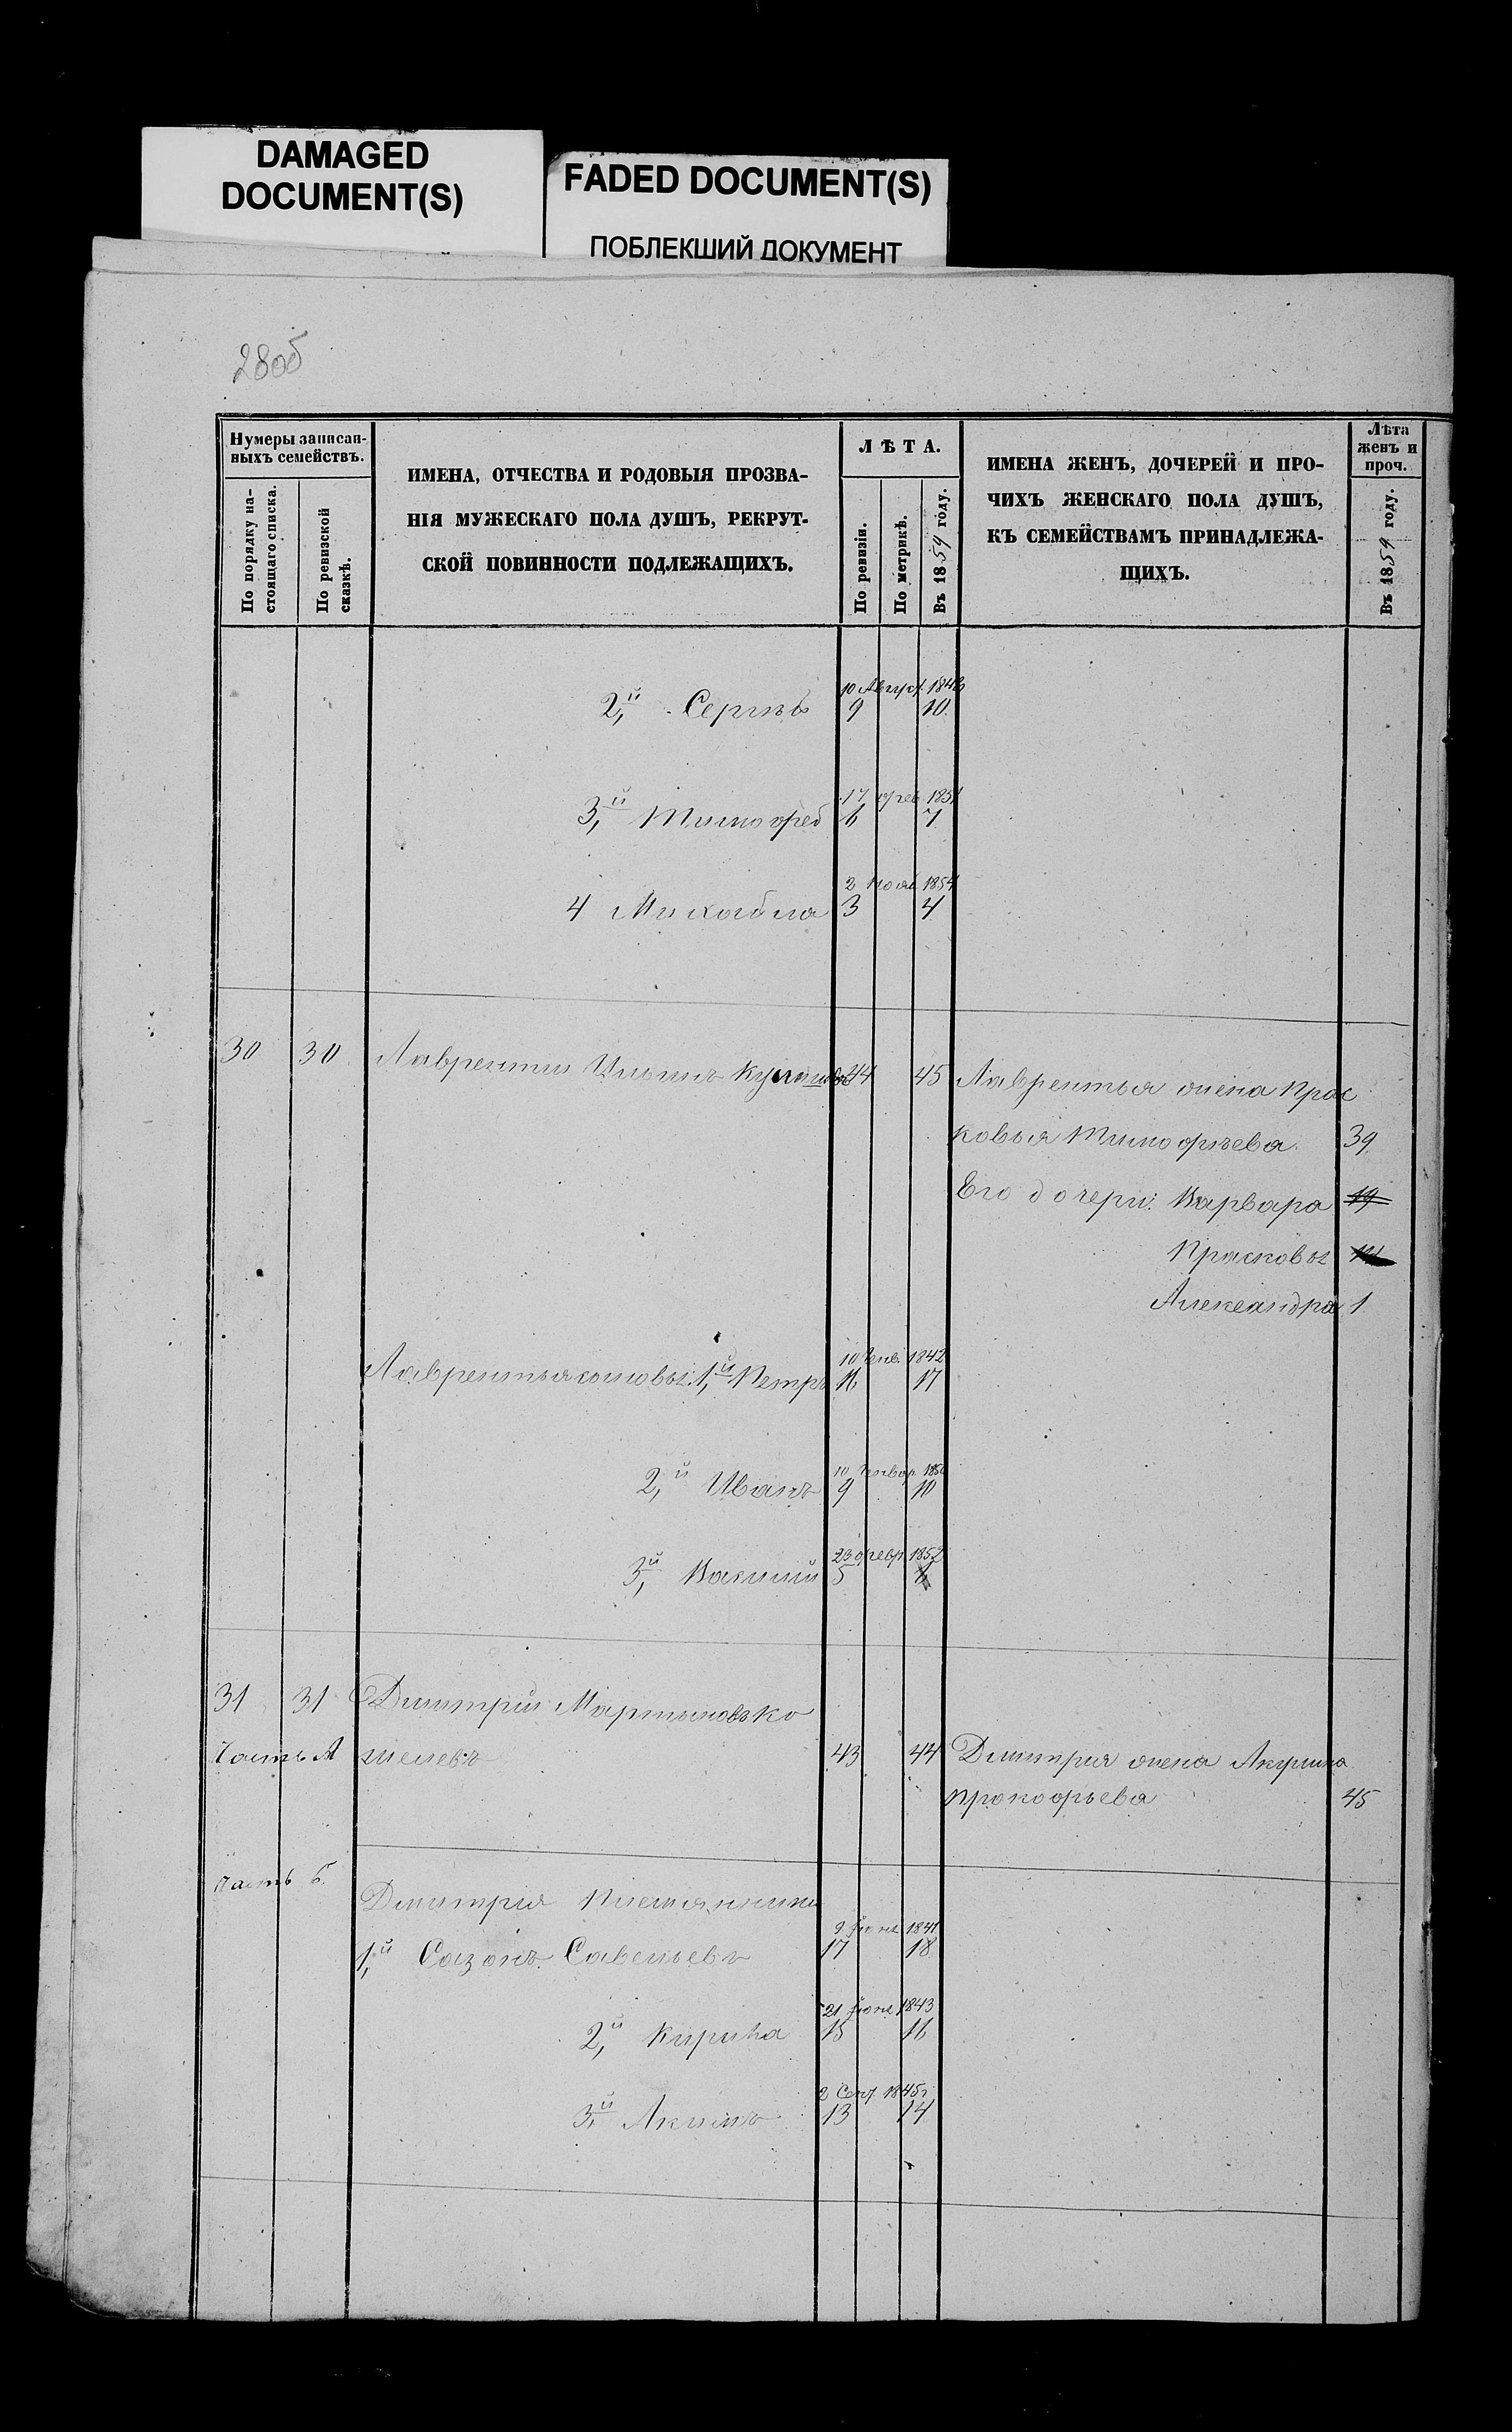 DAMAGED
DOCUMENT(S)
FADED DOCUMENT(S)
ПОБЛЕКШИЙ ДОКУМЕНТ
28об
Нумеры записан-
ныхъ семействъ.
По порядку на-
стоящаго списка.
По ревизской
сказкѣ.
ИМЕНА, ОТЧЕСТВА И РОДОВЫЯ ПРОЗВА-
НІЯ МУЖЕСКАГО ПОЛА ДУШЪ, РЕКРУТ-
СКОЙ ПОВИННОСТИ ПОДЛЕЖАЩИХЪ.
ЛѢТА.
По ревизіи.
По метрикѣ.
Въ 1859 году.
ИМЕНА ЖЕНЪ, ДОЧЕРЕЙ И ПРО-
ЧИХЪ ЖЕНСКАГО ПОЛА ДУШЪ,
КЪ СЕМЕЙСТВАМЪ ПРИНАДЛЕЖА-
ЩИХЪ.
Лѣта
женъ и
проч.
Въ 1859 году.
10 Август.
2,й Сергѣй 9 10
17 фев 1851
3,й Тимофей 6 7
2 Нояб 1854
4 Михайла 3 4
30 30 Лаврентий Ильинъ 44 45 Лаврентья жена Прас
ковья Тимофѣева 39
Его дочери: Варвара 19
Прасковья
Александра 1
10 Генв. 1842
Лаврентья сыновья: 1,й Петръ 16 17
10 Генвар.
2,й Иванъ 9 10
23 февр.
3,й Василий 5 6
31 31 Дмитрий Мартыновъ Ко
Часть А шелевъ 43 44 Дмитрия жена Акулина
Прокофьева 45
Часть Б.
Дмитрия племянники
9 1841
1,й Сазонъ Савельевъ 17 18
21 1843
2,й Кирила 15 16
2 Сент. 1845г
3,й Акимъ 13 14